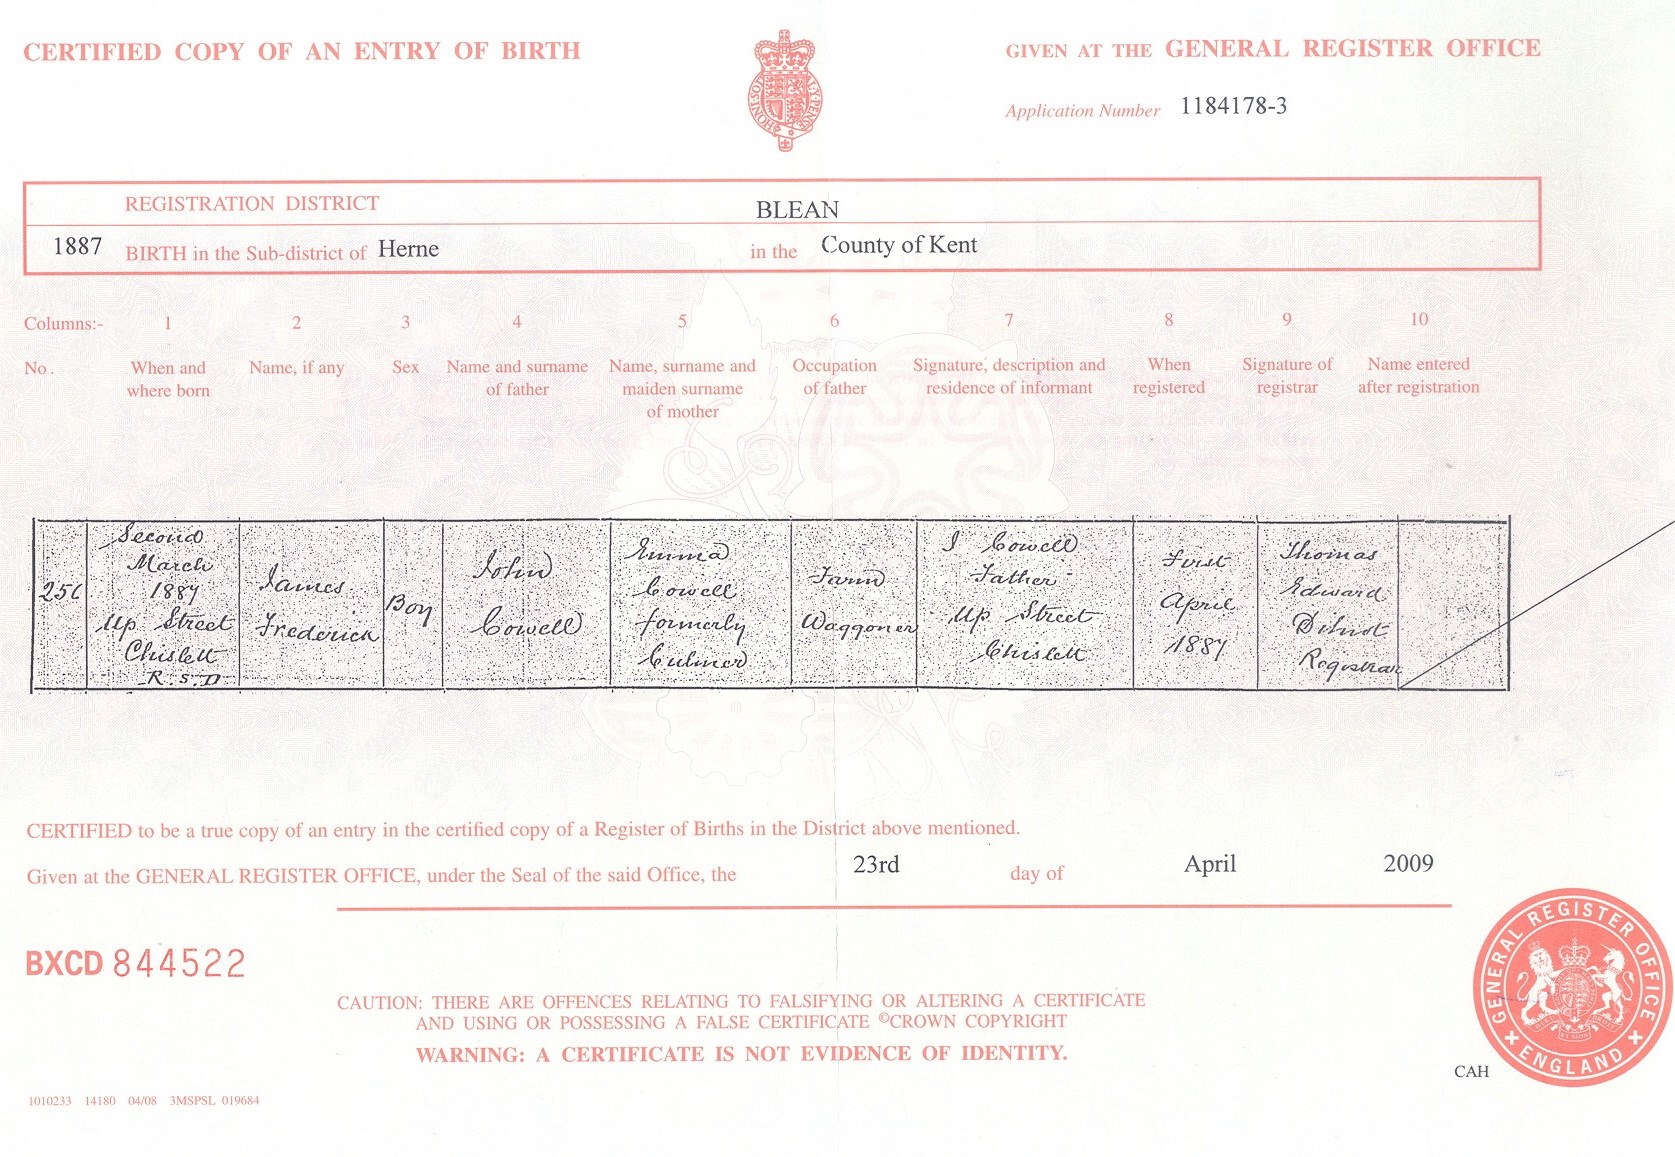 CERTIFIED COPY OF AN ENTRY OF BIRTH
GIVEN AT THE GENERAL REGISTER OFFICE
Application Number 1184178-3
REGISTRATION DISTRICT BLEAN
1887 BIRTH in the Sub-district of Herne in the County of Kent
Columns:- 1 2 3 4 5 6 7 8 9 10
No. When and where born
Name, if any
Sex
Name and surname of father
Name, surname and maiden surname of mother
Occupation of father
Signature, description and residence of informant
When registered
Signature of registrar
Name entered after registration
Second
March
1887
Up Street
Chislett
R.S.D
James
Frederick
Boy
John
Cowell
Emma
Cowell
formerly
Culmer
Farm
Waggoner
J Cowell
Father
Up Street
Chislett
First
April
1887
Thomas
Edward
Registrar
CERTIFIED to be a true copy of an entry in the certified copy of a Register of Births in the District above mentioned.
Given at the GENERAL REGISTER OFFICE, under the Seal of the said Office, the 23rd day of April 2009
BXCD 844522
CAUTION: THERE ARE OFFENCES RELATING TO FALSIFYING OR ALTERING A CERTIFICATE
AND USING OR POSSESSING A FALSE CERTIFICATE ©CROWN COPYRIGHT
WARNING: A CERTIFICATE IS NOT EVIDENCE OF IDENTITY.
GENERAL REGISTER OFFICE
ENGLAND
CAH
1010233 14180 04/08 3MSPSL 019684